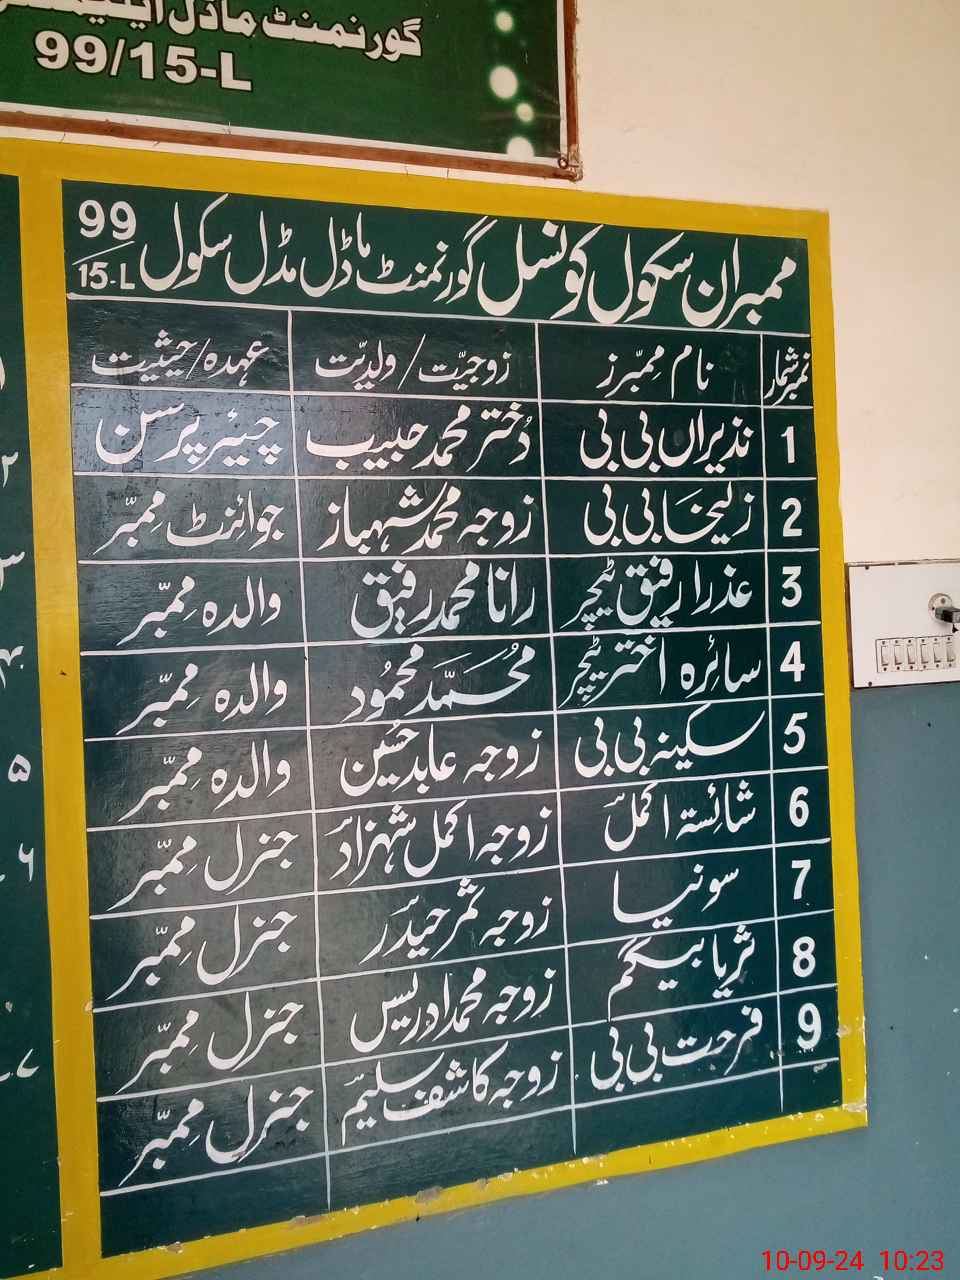 گورنمنٹ ماڈل
99/15-L
ممبران سکول کونسل گورنمنٹ ماڈل مڈل سکول 99/15-L
نمبر شمار نام ممبرز زوجیّت/ولدیّت عہدہ/حیثیت
1 نذیراں بی بی دُختر محمد حبیب چیئرپرسن
2 زلیخا بی بی زوجہ محمد شہباز جوائنٹ مِمبّر
3 عذرا رفیق ٹیچر رانا محمد رفیق والدہ مِمبّر
4 سائرہ اختر ٹیچر محمّد محمُود والدہ مِمبّر
5 سکینہ بی بی زوجہ عابد حُسین والدہ مِمبّر
6 شائستہ اکمل زوجہ اکمل شہزاد جنرل مِمبّر
7 سونیا زوجہ ثمر حیدَر جنرل مِمبّر
8 ثریا بیگم زوجہ محمد ادریس جنرل مِمبّر
9 فرحت بی بی زوجہ کاشف سلیم جنرل مِمبّر
۲
۳
۵
۶
۷
10-09-24 10:23